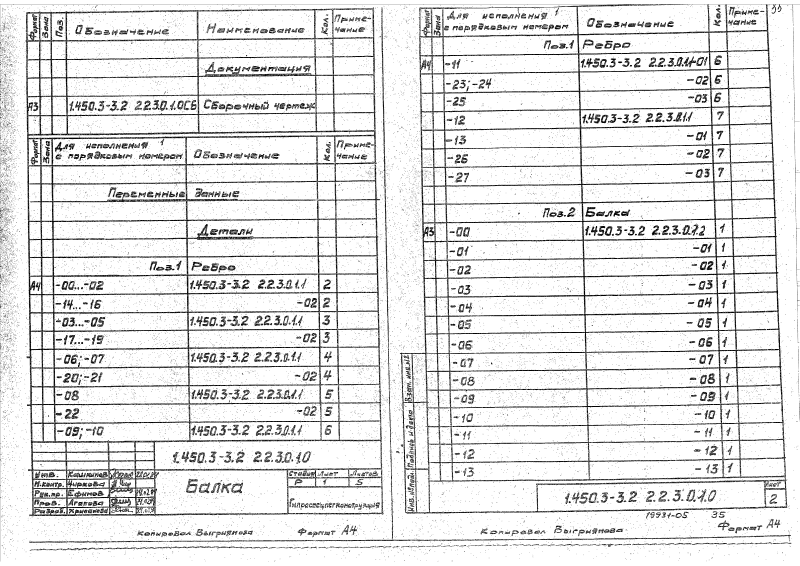 Формат Зона Поз. Обозначение Наименование Кол. Приме-чание
Документация
А3 1.450.3-3.2 2.2.3.0.1.0СБ Сборочный чертеж
Формат Зона Для исполнения 1 с порядковым номером Обозначение Кол. Приме-чание
Переменные данные
Детали
Поз.1 Ребро
А4 -00...-02 1.450.3-3.2 2.2.3.0.1.1 2
-14...-16 -02 2
-03...-05 1.450.3-3.2 2.2.3.0.1.1 3
-17...-19 -02 3
-06;-07 1.450.3-3.2 2.2.3.0.1.1 4
-20;-21 -02 4
-08 1.450.3-3.2 2.2.3.0.1.1 5
-22 -02 5
-09;-10 1.450.3-3.2 2.2.3.0.1.1 6
1.450.3-3.2 2.2.3.0.1.0
Н.контр. Чиркова
Рук.пр. Ефимов
Пров.
Разраб.
Балка
Стадия Лист Листов
Р 1 5
Гипроспецлегконструкция
Копировал Выгриянова Формат А4
Формат Зона Для исполнения 1 с порядковым номером Обозначение Кол. Приме-чание
Поз.1 Ребро
А4 -11 1.450.3-3.2 2.2.3.0.1.1-01 6
-23;-24 -02 6
-25 -03 6
-12 1.450.3-3.2 2.2.3.0.1.1 7
-13 -01 7
-26 -02 7
-27 -03 7
Поз.2 Балка
А3 -00 1.450.3-3.2 2.2.3.0.1.2 1
-01 -01 1
-02 -02 1
-03 -03 1
-04 -04 1
-05 -05 1
-06 -06 1
-07 -07 1
-08 -08 1
-09 -09 1
-10 -10 1
-11 -11 1
-12 -12 1
-13 -13 1
Инв. № подл. Подпись и дата Взам. инв. №
1.450.3-3.2 2.2.3.0.1.0
Лист
2
19931-05 35
Копировал Выгриянова Формат А4